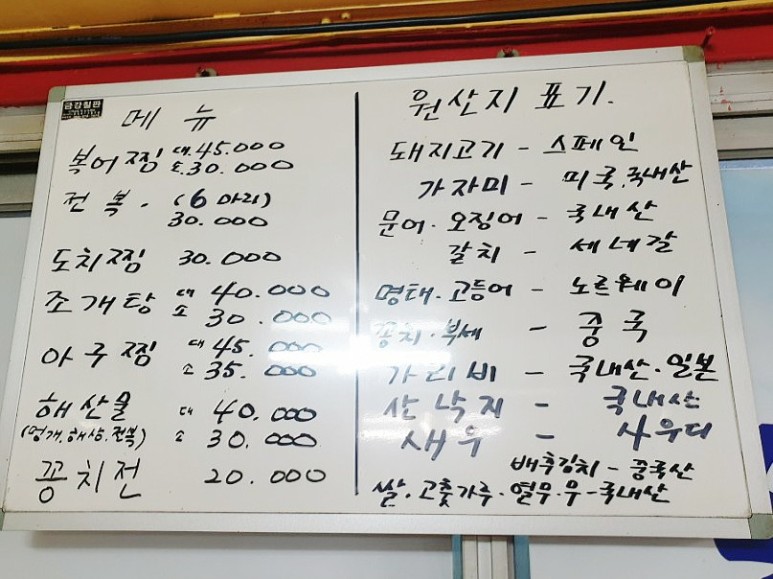 금강칠판
메 뉴
복어찜 대.45.000
소.30.000
전 복. (6 마리)
30.000
도치찜 30.000
조개탕 대 40.000
소 30.000
아구찜 대 45.000
소 35.000
해산물 대 40.000
(멍게.해삼.전복) 소 30.000
꽁치전 20.000
원산지 표기.
돼지고기 - 스페인
가자미 - 미국.국내산
문어.오징어 - 국내산
갈치 - 세네갈
명태.고등어 - 노르웨이
꽁치.부세 - 중국
가리비 - 국내산.일본
산낙지 - 국내산
새우 - 사우디
배추김치 - 중국산
쌀.고춧가루.열무.무-국내산